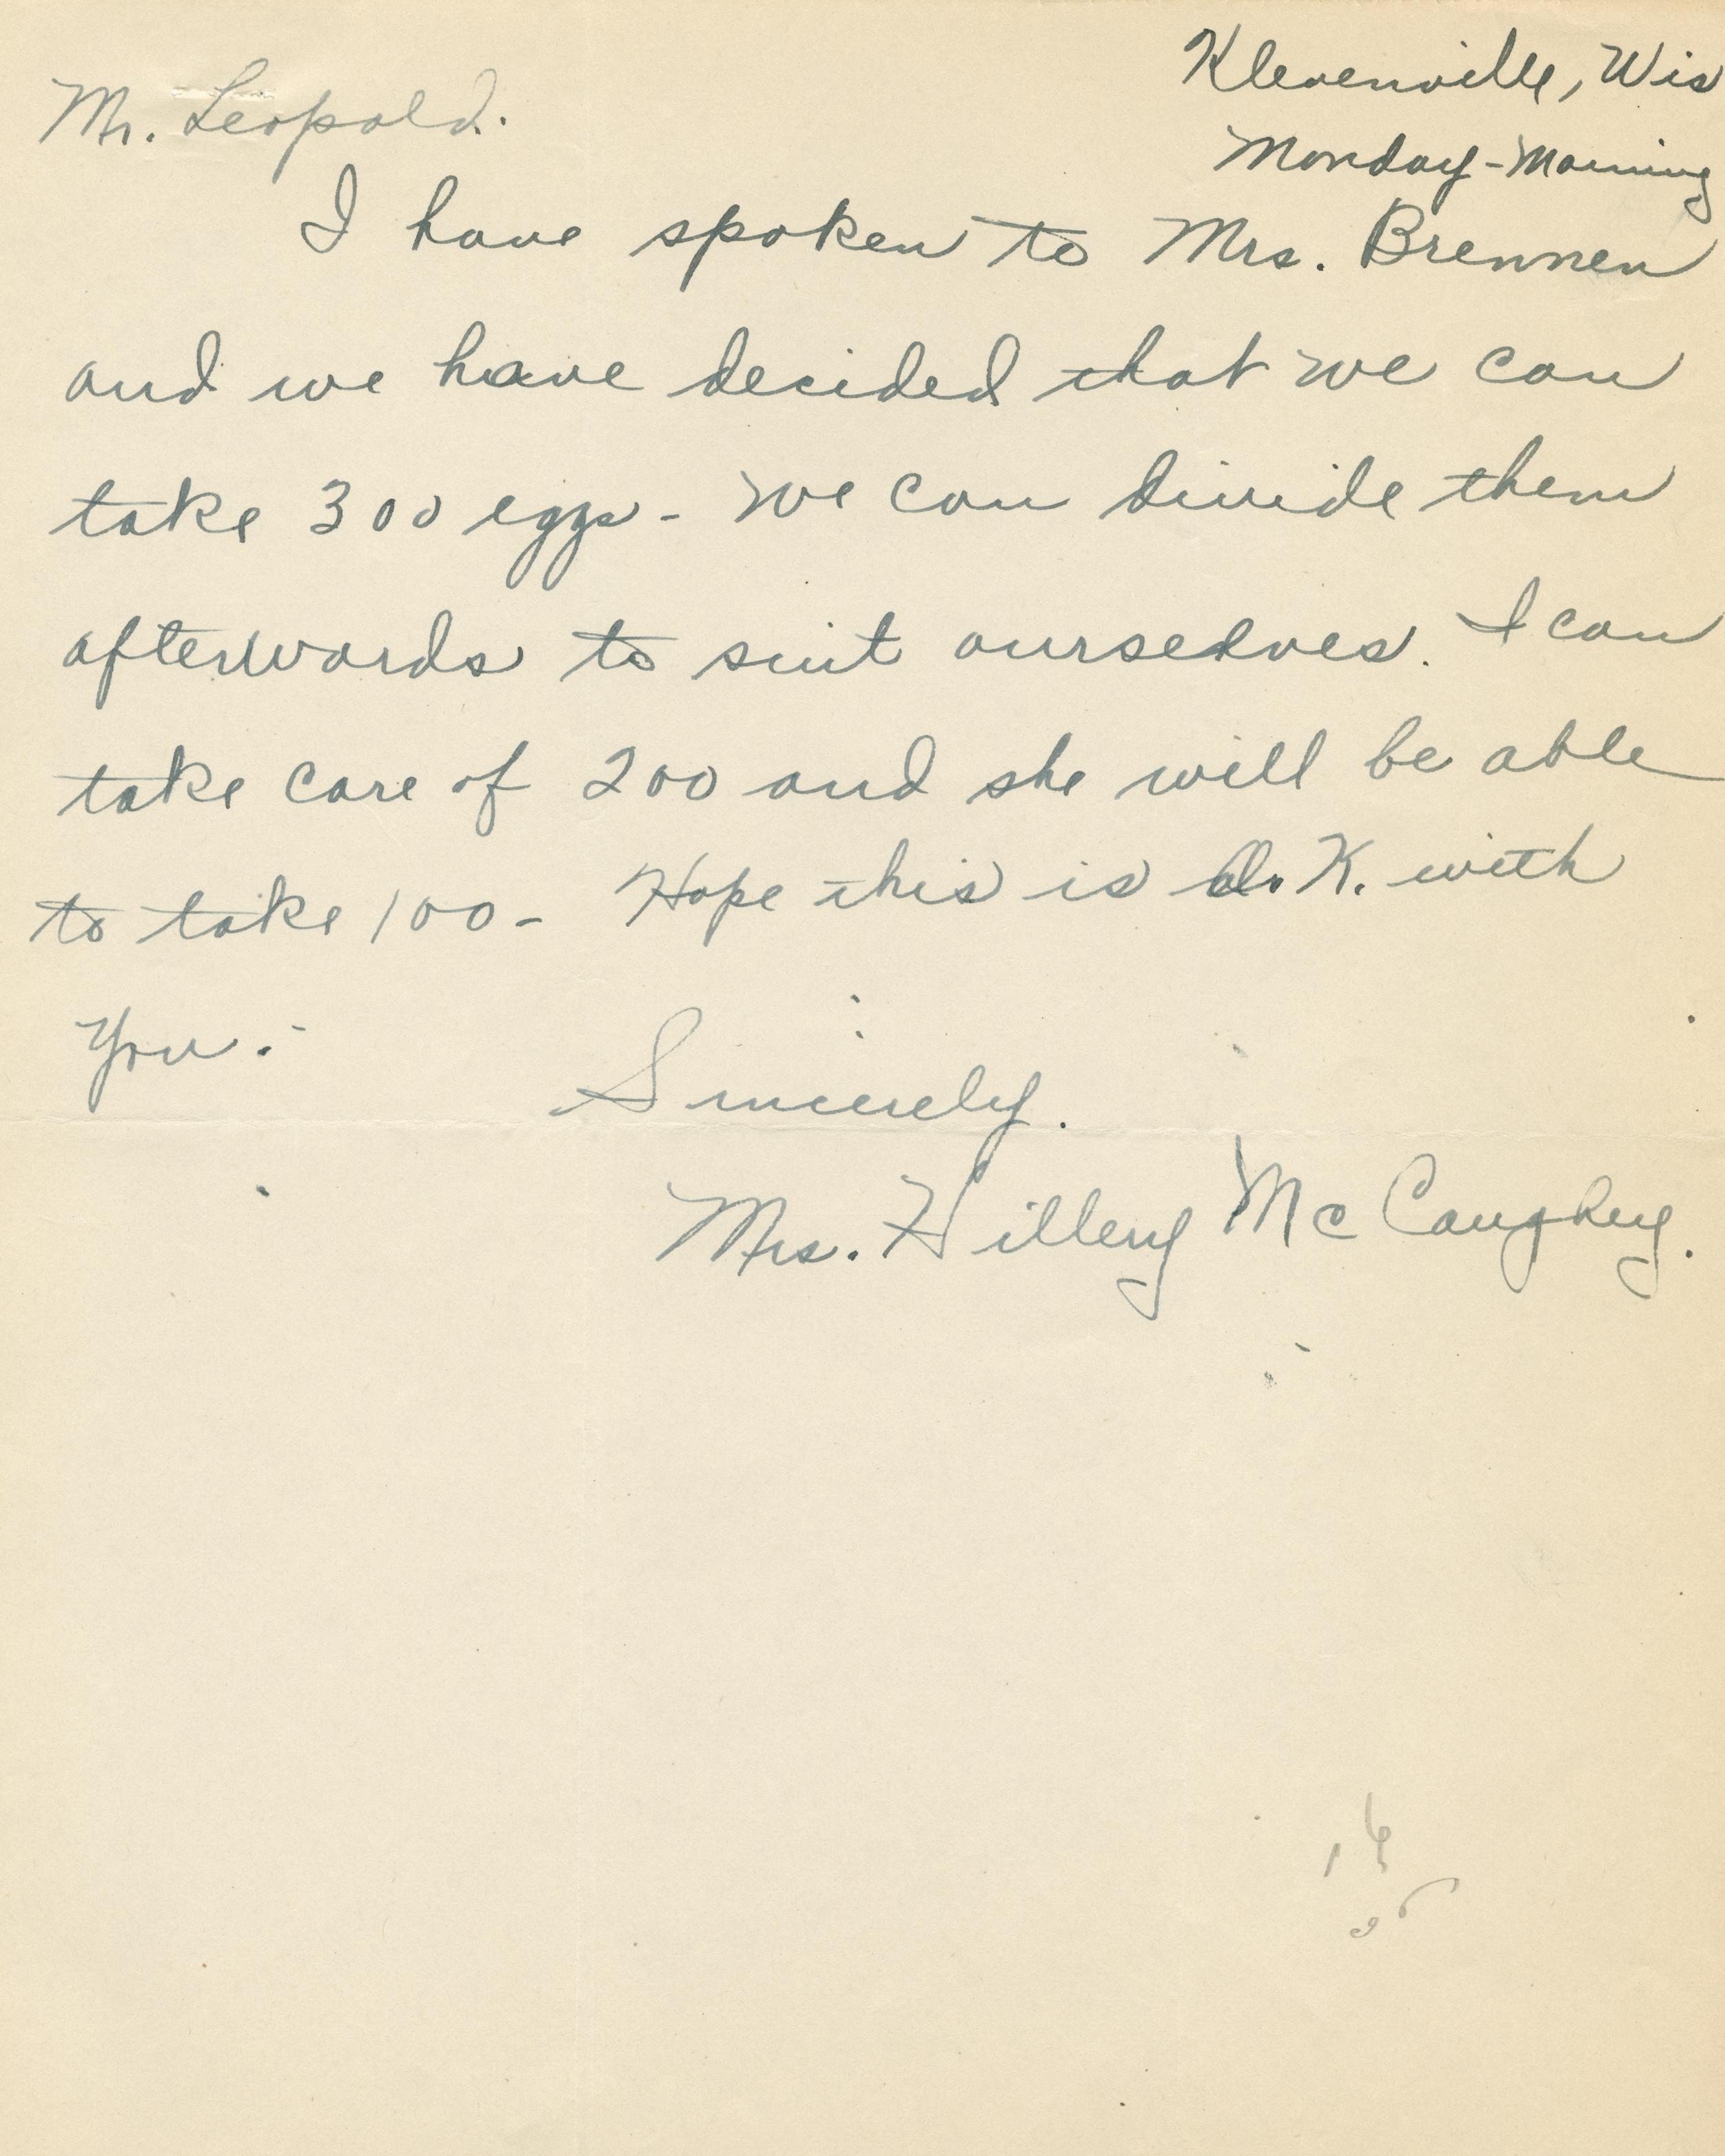 Klevenville, Wis
Monday - Morning
Mr. Leopold.
I have spoken to Mrs. Brennen
and we have decided that we can
take 300 eggs - We can divide them
afterwards to suit ourselves. I can
take care of 200 and she will be able
to take 100 - Hope this is O.K. with
You.
Sincerely.
Mrs. Hillery McCaughey.